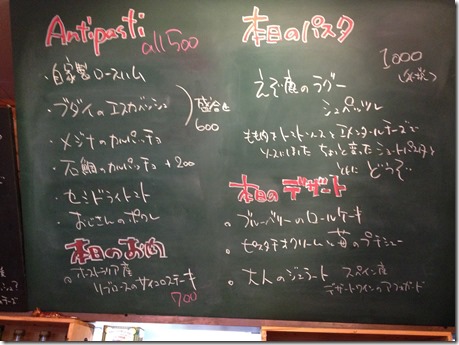 Antipasti all 500
・自家製ロースハム
・ブダイのエスカベッシュ
盛合せ
600
・メジナのカルパッチョ
・石鯛のカルパッチョ +200
・セミドライトマト
・おじさんのポワレ
本日のお肉
・オーストラリア産
リブロースのサイコロステーキ
700
本日のパスタ
1000
えぞ鹿のラグー
シュペッツレ
ちょっと変わったショートパスタを
どうぞ
本日のデザート
・ブルーベリーのロールケーキ
・ピスタチオクリームと苺のプチシュー
・大人のジェラート スペイン産
デザートワインのアフォガード